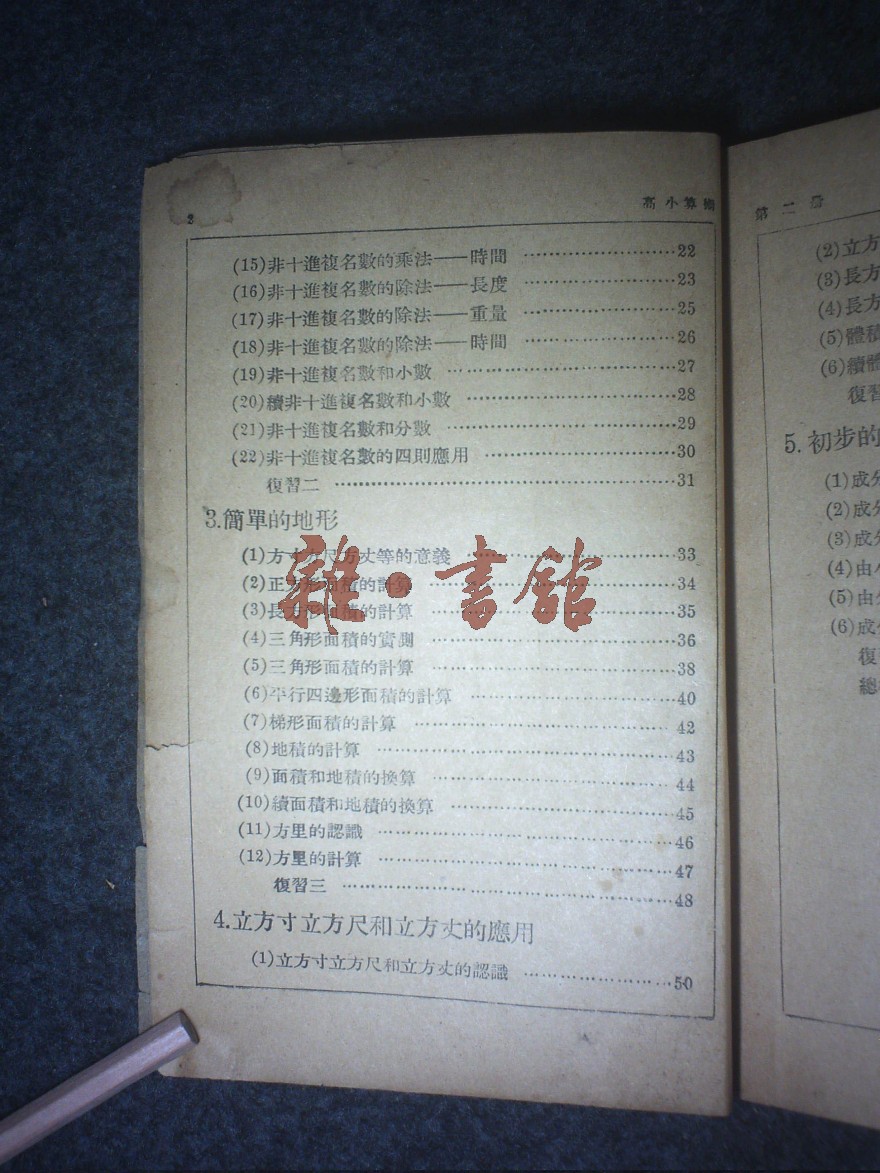 2
高小算術
(15)非十進複名數的乘法——時間 ……………………22
(16)非十進複名數的除法——長度 ……………………23
(17)非十進複名數的除法——重量 ……………………25
(18)非十進複名數的除法——時間 ……………………26
(19)非十進複名數和小數 ……………………27
(20)續非十進複名數和小數 ……………………28
(21)非十進複名數和分數 ……………………29
(22)非十進複名數的四則應用 ……………………30
復習二 ……………………31
3.簡單的地形
(1)方寸方尺方丈等的意義 ……………………33
(2)正方形面積的計算 ……………………34
(3)長方形面積的計算 ……………………35
(4)三角形面積的實測 ……………………36
(5)三角形面積的計算 ……………………38
(6)平行四邊形面積的計算 ……………………40
(7)梯形面積的計算 ……………………42
(8)地積的計算 ……………………43
(9)面積和地積的換算 ……………………44
(10)續面積和地積的換算 ……………………45
(11)方里的認識 ……………………46
(12)方里的計算 ……………………47
復習三 ……………………48
4.立方寸立方尺和立方丈的應用
(1)立方寸立方尺和立方丈的認識 ……………………50
雜·書館
第二册
(2)立方
(3)長方
(4)長方
(5)體積
(6)續體
復習
5.初步的
(1)成分
(2)成分
(3)成分
(4)由
(5)由
(6)成分
復
總